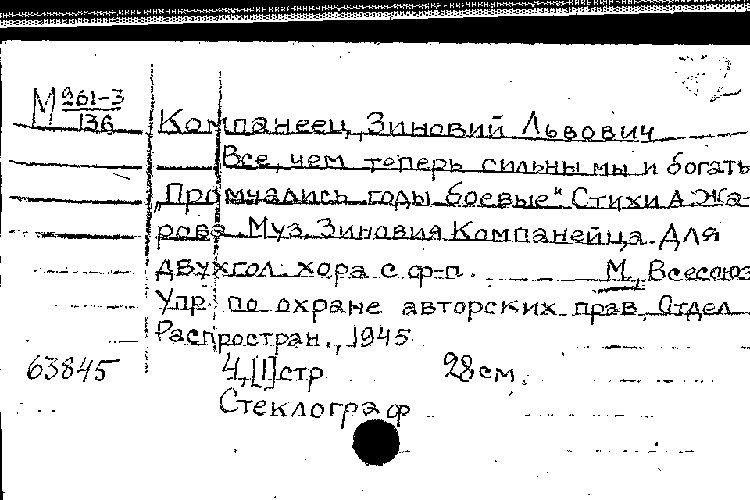 М 261-3
136
Компанеец, Зиновий Львович
Все, чем теперь сильны мы и богаты
„Промчались годы боевые" Стихи А. Жа-
рова. Муз. Зиновия Компанейца. Для
двухгол. хора с ф-п. М., Всесоюз
Упр. по охране авторских прав, Отдел
Распростран., 1945
63845 4,[1] стр 28 см.
Стеклограф